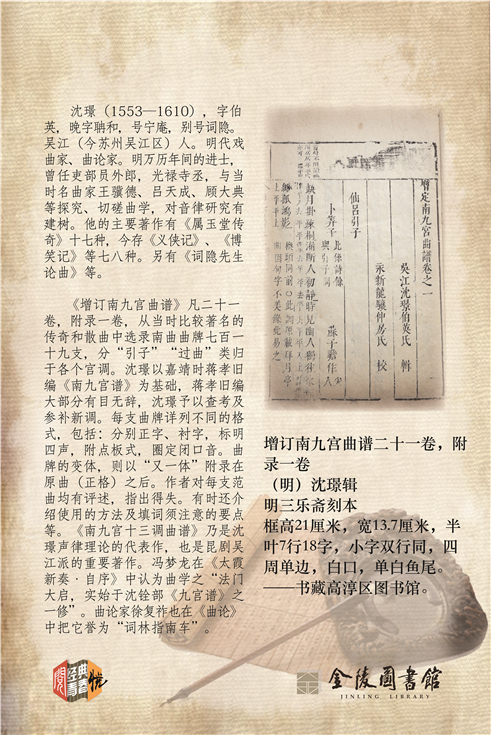 沈璟（1553—1610），字伯
英，晚字聃和，号宁庵，别号词隐。
吴江（今苏州吴江区）人。明代戏
曲家、曲论家。明万历年间的进士，
曾任吏部员外郎，光禄寺丞，与当
时名曲家王骥德、吕天成、顾大典
等探究、切磋曲学，对音律研究有
建树。他的主要著作有《属玉堂传
奇》十七种，今存《义侠记》、《博
笑记》等七八种。另有《词隐先生
论曲》等。
《增订南九宫曲谱》凡二十一
卷，附录一卷，从当时比较著名的
传奇和散曲中选录南曲曲牌七百一
十九支，分“引子”“过曲”类归
于各个宫调。沈璟以嘉靖时蒋孝旧
编《南九宫谱》为基础，蒋孝旧编
大部分有目无辞，沈璟予以查考及
参补新调。每支曲牌详列不同的格
式，包括：分别正字、衬字，标明
四声，附点板式，圈定闭口音。曲
牌的变体，则以“又一体”附录在
原曲（正格）之后。作者对每支范
曲均有评述，指出得失。有时还介
绍使用的方法及填词须注意的要点
等。《南九宫十三调曲谱》乃是沈
璟声律理论的代表作，也是昆剧吴
江派的重要著作。冯梦龙在《太霞
新奏·自序》中认为曲学之“法门
大启，实始于沈铨部《九宫谱》之
一修”。曲论家徐复祚也在《曲论》
中把它誉为“词林指南车”。
增定南九宮曲譜卷之一
吳江沈璟伯英氏 輯
永新龍驤仲房氏 校
仙呂引子
卜算子
蘇子瞻作
缺月掛疎桐漏斷人初靜時見幽人獨往來
增订南九宫曲谱二十一卷，附
录一卷
（明）沈璟辑
明三乐斋刻本
框高21厘米，宽13.7厘米，半
叶7行18字，小字双行同，四
周单边，白口，单白鱼尾。
——书藏高淳区图书馆。
金陵圖書館
JINLING LIBRARY